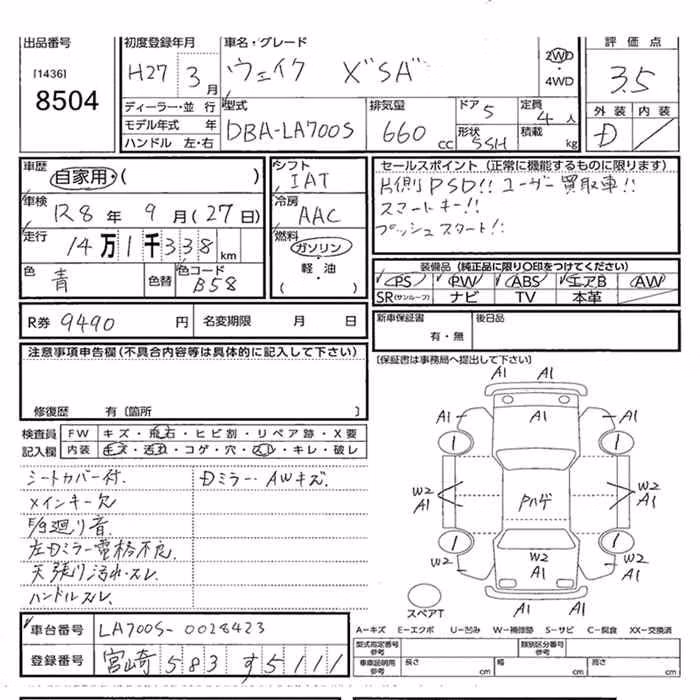 出品番号
[1436]
8504
初度登録年月
H27 3 月
車名・グレード
ウェイク X"SA"
2WD
・
4WD
評価点
3.5
外装 内装
D
ディーラー・並 行
モデル年式 年
ハンドル 左・右
型式
DBA-LA700S
排気量
660 cc
ドア 5
形状 5SH
定員
4 人
積載 kg
車歴
自家用・( )
車検
R8 年 9 月 (27 日)
走行
14 万 1 千 3 3 8 km
色 青
色替
色コード
B58
シフト
IAT
冷房
AAC
燃料
ガソリン
・
軽・油
( )
セールスポイント(正常に機能するものに限ります)
片側PSD!! ユーザー買取車!!
スマートキー!!
プッシュスタート!!
装備品(純正品に限り○印をつけてください)
PS PW ABS エアB AW
SR(サンルーフ) ナビ TV 本革
R券 9490 円 名変期限 月 日
新車保証書
有・無
後日品
(保証書は事務局へ提出して下さい)
注意事項申告欄(不具合内容等は具体的に記入して下さい)
修復歴 有〔箇所 〕
検査員
記入欄
FW キズ・飛石・ヒビ割・リペア跡・X要
内装 キズ・汚れ・コゲ・穴・スレ・キレ・破レ
シートカバー付.
メインキー欠
廻り音
左Dミラー電格不良.
天張り汚れ・スレ
ハンドルスレ.
Dミラー・AWキズ.
A1 A1
A1 A1 A1
1 1
W2 W2
A1 A1
Pハゲ
1 1
W2 W2 W2
A1 A1 A1
スペアT
A-キズ E-エクボ U-凹み W-補修跡 S-サビ C-腐食 XX-交換済
車台番号 LA700S-0028423
登録番号 宮崎 583 す5111
型式指定番号
参考
類別区分番号
参考
車庫証明用
参考
長さ cm
幅 cm
高さ cm